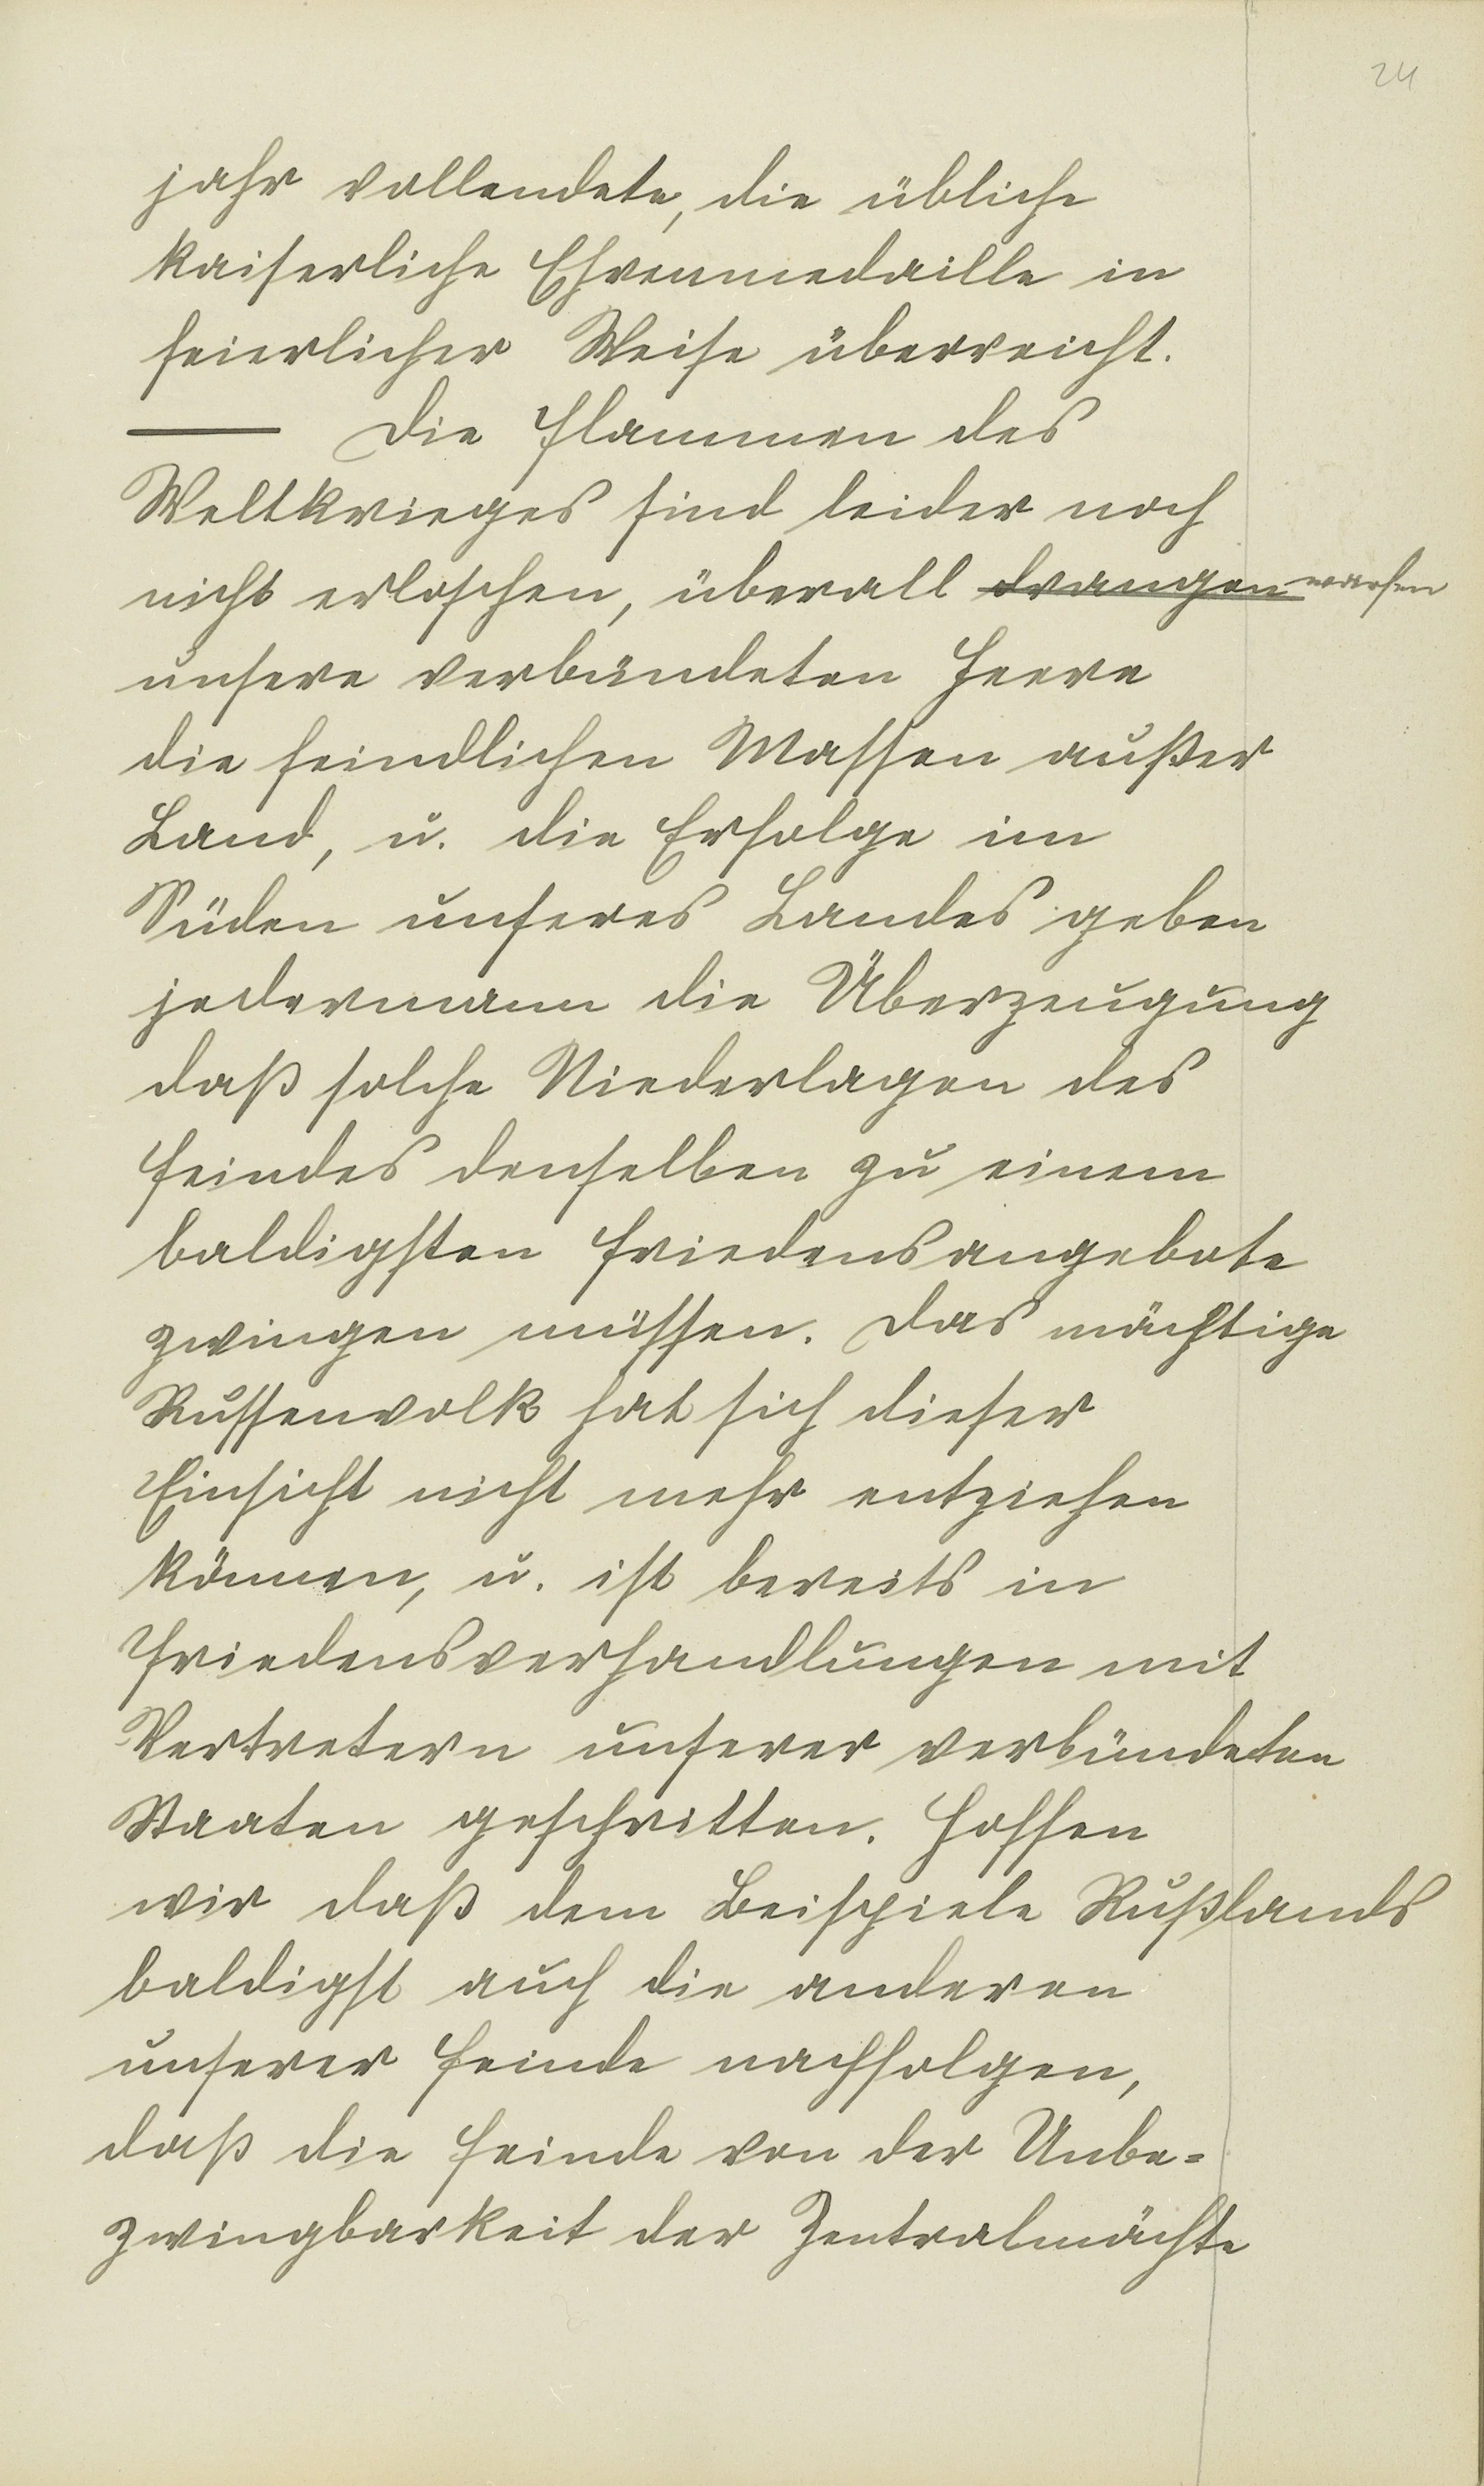 24
jahr vollendete, die übliche
kaiserliche Ehrenmedaille in
feierlicher Weise überreicht.
Die Flammen des
Weltkrieges sind leider noch
nicht erloschen, überall drangen warfen
unsere verbündeten Heere
die feindlichen Massen außer
Land, u. die Erfolge im
Süden unseres Landes geben
jedermann die Überzeugung
daß solche Niederlagen des
Feindes denselben zu einem
baldigsten Friedensangebote
zwingen müssen. Das mächtige
Russenvolk hat sich dieser
Einsicht nicht mehr entziehen
können, u. ist bereits in
Friedensverhandlungen mit
Vertretern unserer verbündeten
Staaten geschritten. Hoffen
wir daß dem Beispiele Rußlands
baldigst auch die anderen
unserer Feinde nachfolgen,
daß die Feinde von der Unbe=
zwingbarkeit der Zentralmächte